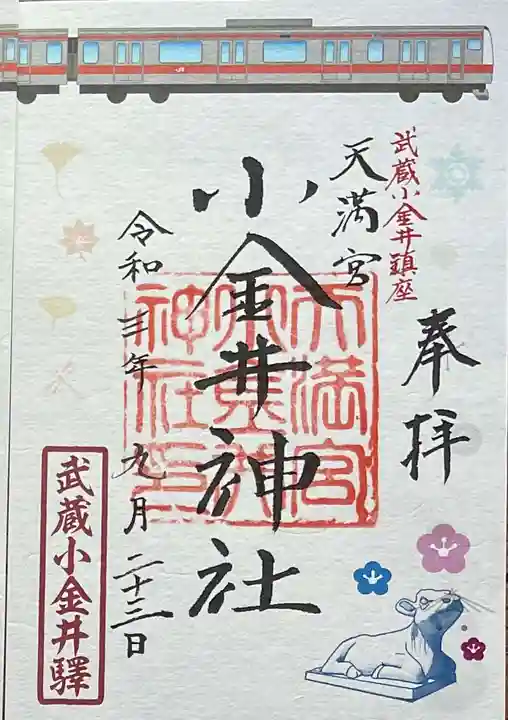 JR
奉拝
武蔵小金井鎮座
天満宮
小金井神社
天満宮
小金井
神社印
令和三年九月二十三日
武蔵小金井驛